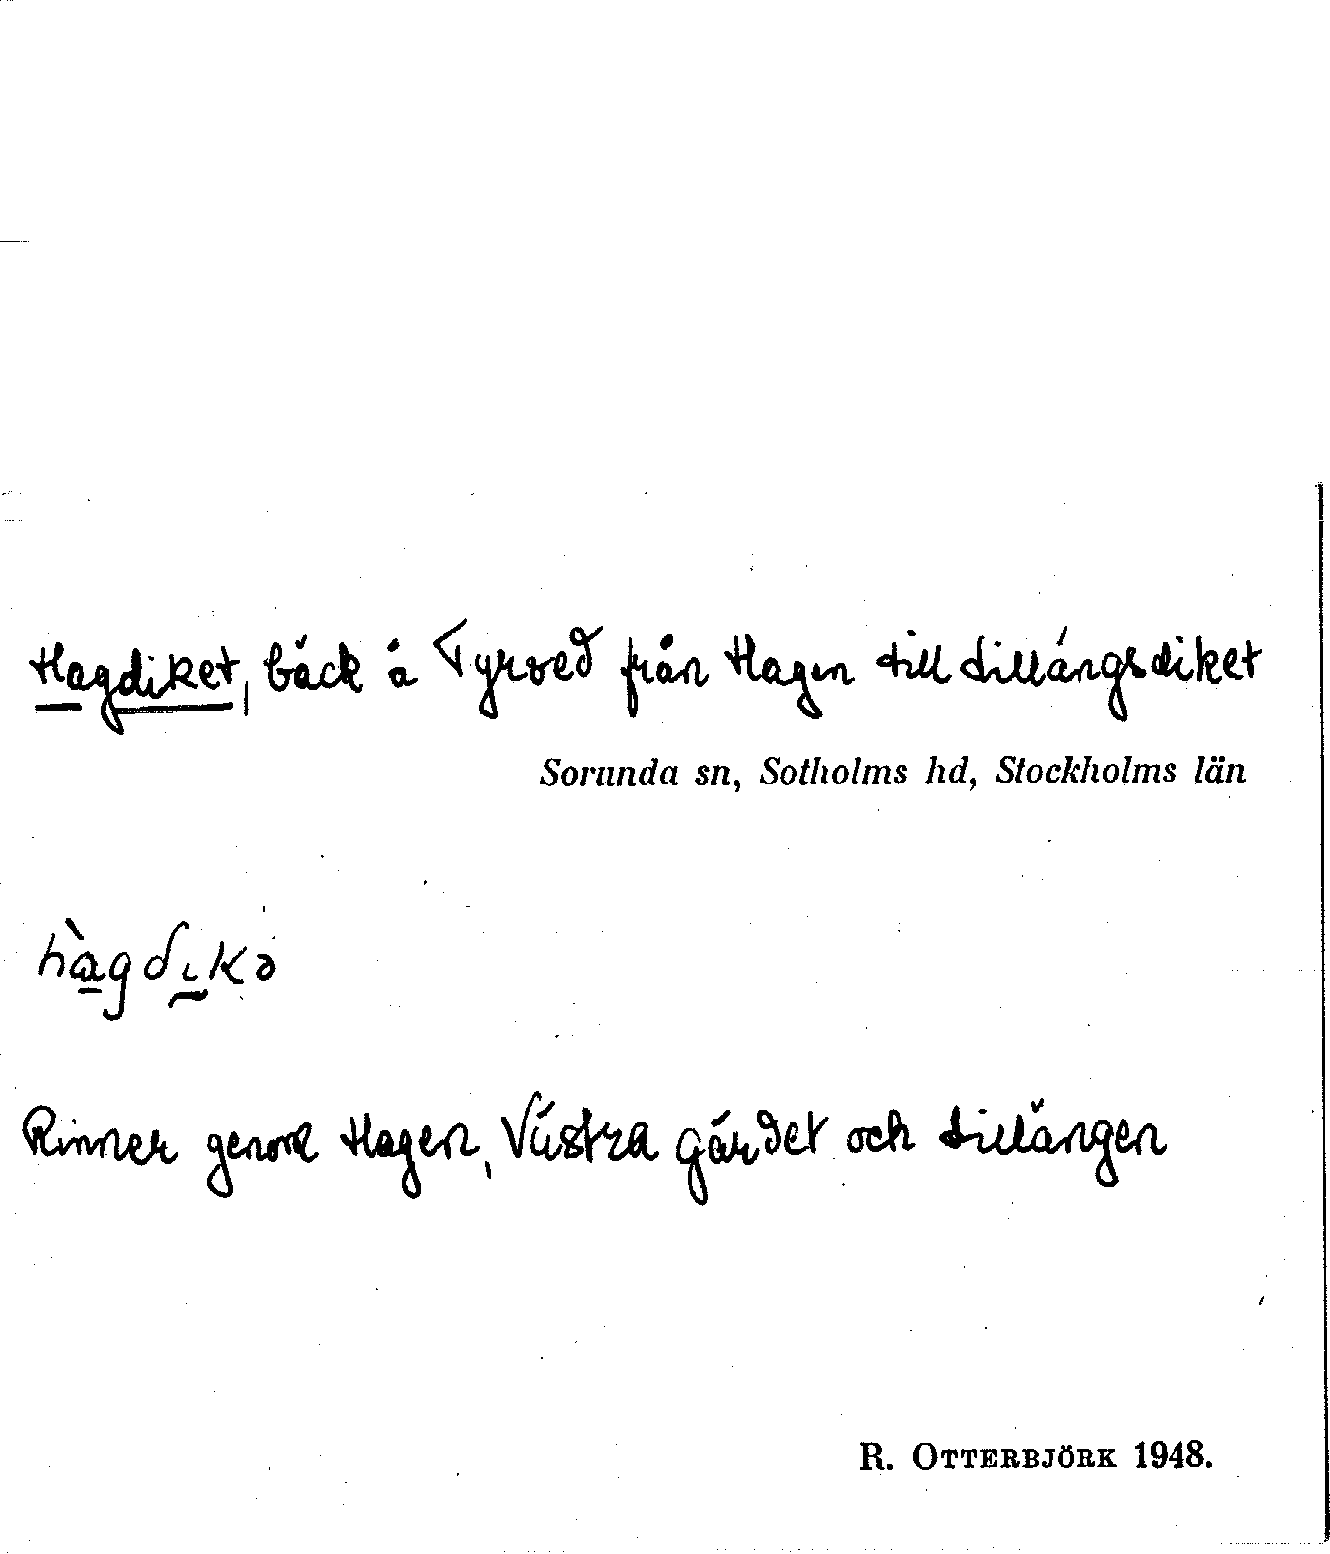 Hagdiket, bäck å Tyrved från Hagen till Lillängsdiket
Sorunda sn, Sotholms hd, Stockholms län
hàgdikə
Rinner genom Hagen, Västra gärdet och Lillängen
R. OTTERBJÖRK 1948.